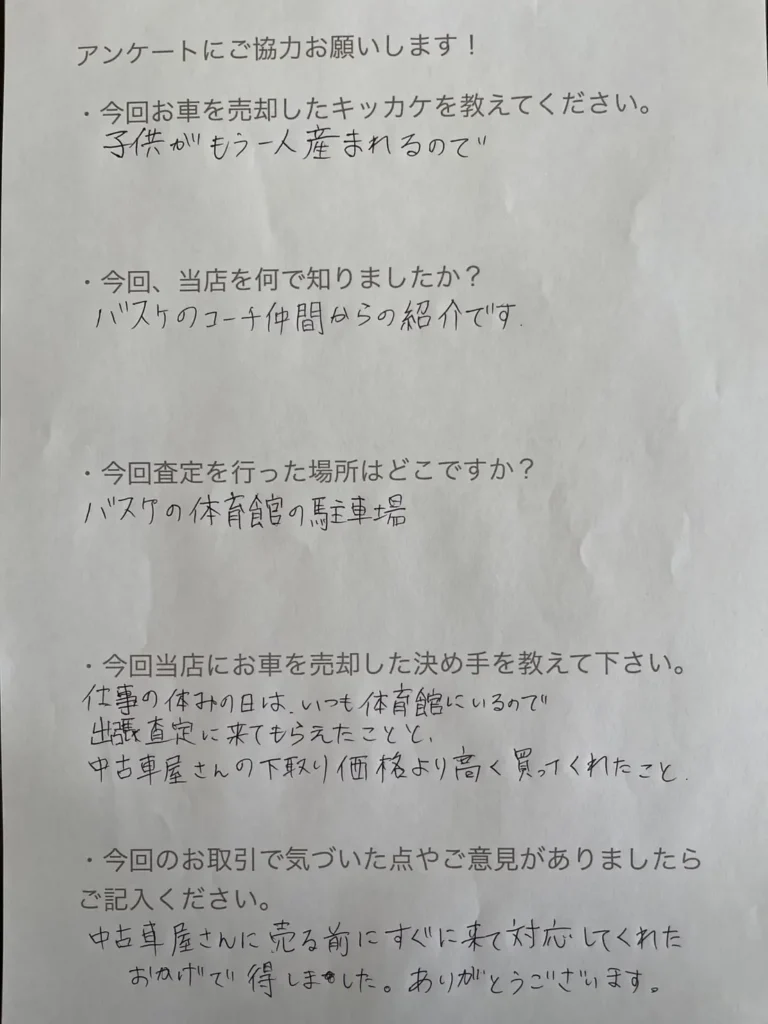 アンケートにご協力お願いします！
・今回お車を売却したキッカケを教えてください。
子供がもう一人産まれるので
・今回、当店を何で知りましたか？
バスケのコーチ仲間からの紹介です.
・今回査定を行った場所はどこですか？
バスケの体育館の駐車場
・今回当店にお車を売却した決め手を教えて下さい。
仕事の休みの日は、いつも体育館にいるので
出張査定に来てもらえたことと、
中古車屋さんの下取り価格より高く買ってくれたこと.
・今回のお取引で気づいた点やご意見がありましたら
ご記入ください。
中古車屋さんに売る前にすぐに来て対応してくれた
おかげで得しました。ありがとうございます。